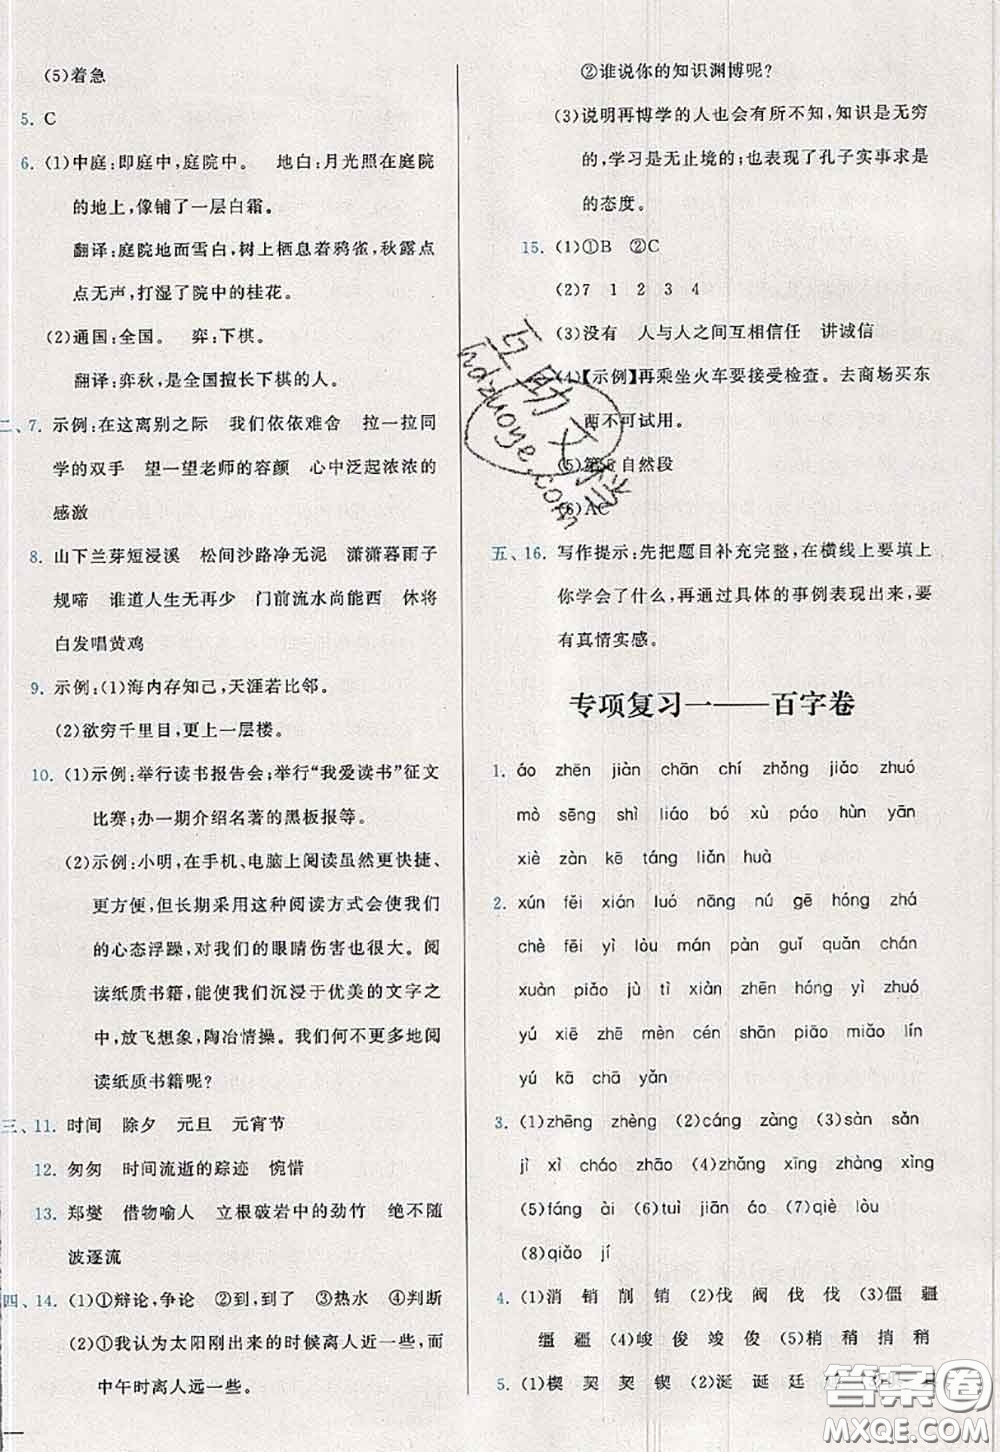 (5)着急
5. C
6. (1)中庭:即庭中,庭院中。 地白:月光照在庭院
的地上,像铺了一层白霜。
翻译:庭院地面雪白,树上栖息着鸦雀,秋露点
点无声,打湿了院中的桂花。
(2)通国:全国。 弈:下棋。
翻译:弈秋,是全国擅长下棋的人。
二、7. 示例:在这离别之际 我们依依难舍 拉一拉同
学的双手 望一望老师的容颜 心中泛起浓浓的
感激
8. 山下兰芽短浸溪 松间沙路净无泥 潇潇暮雨子
规啼 谁道人生无再少 门前流水尚能西 休将
白发唱黄鸡
9. 示例:(1)海内存知己,天涯若比邻。
(2)欲穷千里目,更上一层楼。
10. (1)示例:举行读书报告会;举行“我爱读书”征文
比赛;办一期介绍名著的黑板报等。
(2)示例:小明,在手机、电脑上阅读虽然更快捷、
更方便,但长期采用这种阅读方式会使我们
的心态浮躁,对我们的眼睛伤害也很大。阅
读纸质书籍,能使我们沉浸于优美的文字之
中,放飞想象,陶冶情操。我们何不更多地阅
读纸质书籍呢?
三、11. 时间 除夕 元旦 元宵节
12. 匆匆 时间流逝的踪迹 惋惜
13. 郑燮 借物喻人 立根破岩中的劲竹 绝不随
波逐流
四、14. (1)①辩论,争论 ②到,到了 ③热水 ④判断
(2)①我认为太阳刚出来的时候离人近一些,而
中午时离人远一些。
②谁说你的知识渊博呢?
(3)说明再博学的人也会有所不知,知识是无穷
的,学习是无止境的,也表现了孔子实事求是
的态度。
15. (1)①B ②C
(2)7 1 2 3 4
(3)没有 人与人之间互相信任 讲诚信
(4)【示例】再乘坐火车要接受检查。去商场买东
西不可试用。
(5)第 自然段
(6)AC
五、16. 写作提示:先把题目补充完整,在横线上要填上
你学会了什么,再通过具体的事例表现出来,要
有真情实感。
专项复习一——百字卷
1. áo zhēn jiàn chān chí zhǒng jiǎo zhuó
mò sēng shì liáo bó xù páo hùn yān
xiè zàn kē táng liǎn huà
2. xún fēi xián luó nāng nú gē hóng zhá
chè fēi yì lòu mán pàn guǐ quān chán
xuàn piǎo jù tì màn zhēn hóng yì zhé
yú xiē zhē mèn cén shān piāo miǎo lín
yú kā chā yǎn
3. (1)zhēng zhèng (2)cáng zàng (3)sàn sǎn
jì xì cháo zhāo (4)zhǎng xīng zhàng xìng
(5)fáng ài (6)tuì jiān (7)qiè lòu
(8)qiǎo jí
4. (1)消 销 削 销 (2)伐 阀 伐 伐 (3)僵 疆
缰 疆 (4)峻 俊 竣 俊 (5)梢 稍 捎 稍
5. (1)楔 契 契 锲 (2)诞 诞 廷
互助文学
hdzuoye.com
答案圈
MXQE.COM